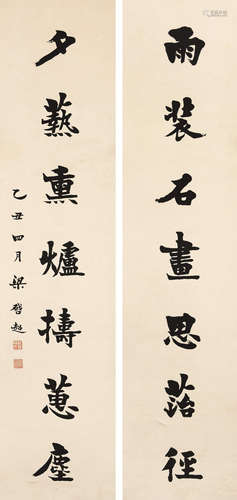 雨裝石畫思菭徑
夕爇熏爐擣蕙塵
乙丑四月梁啓超